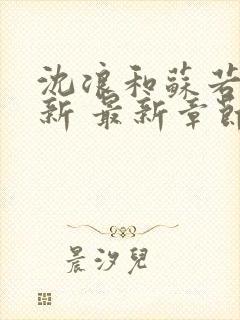 沈浪和蘇若
新 最新章節
晨汐兒